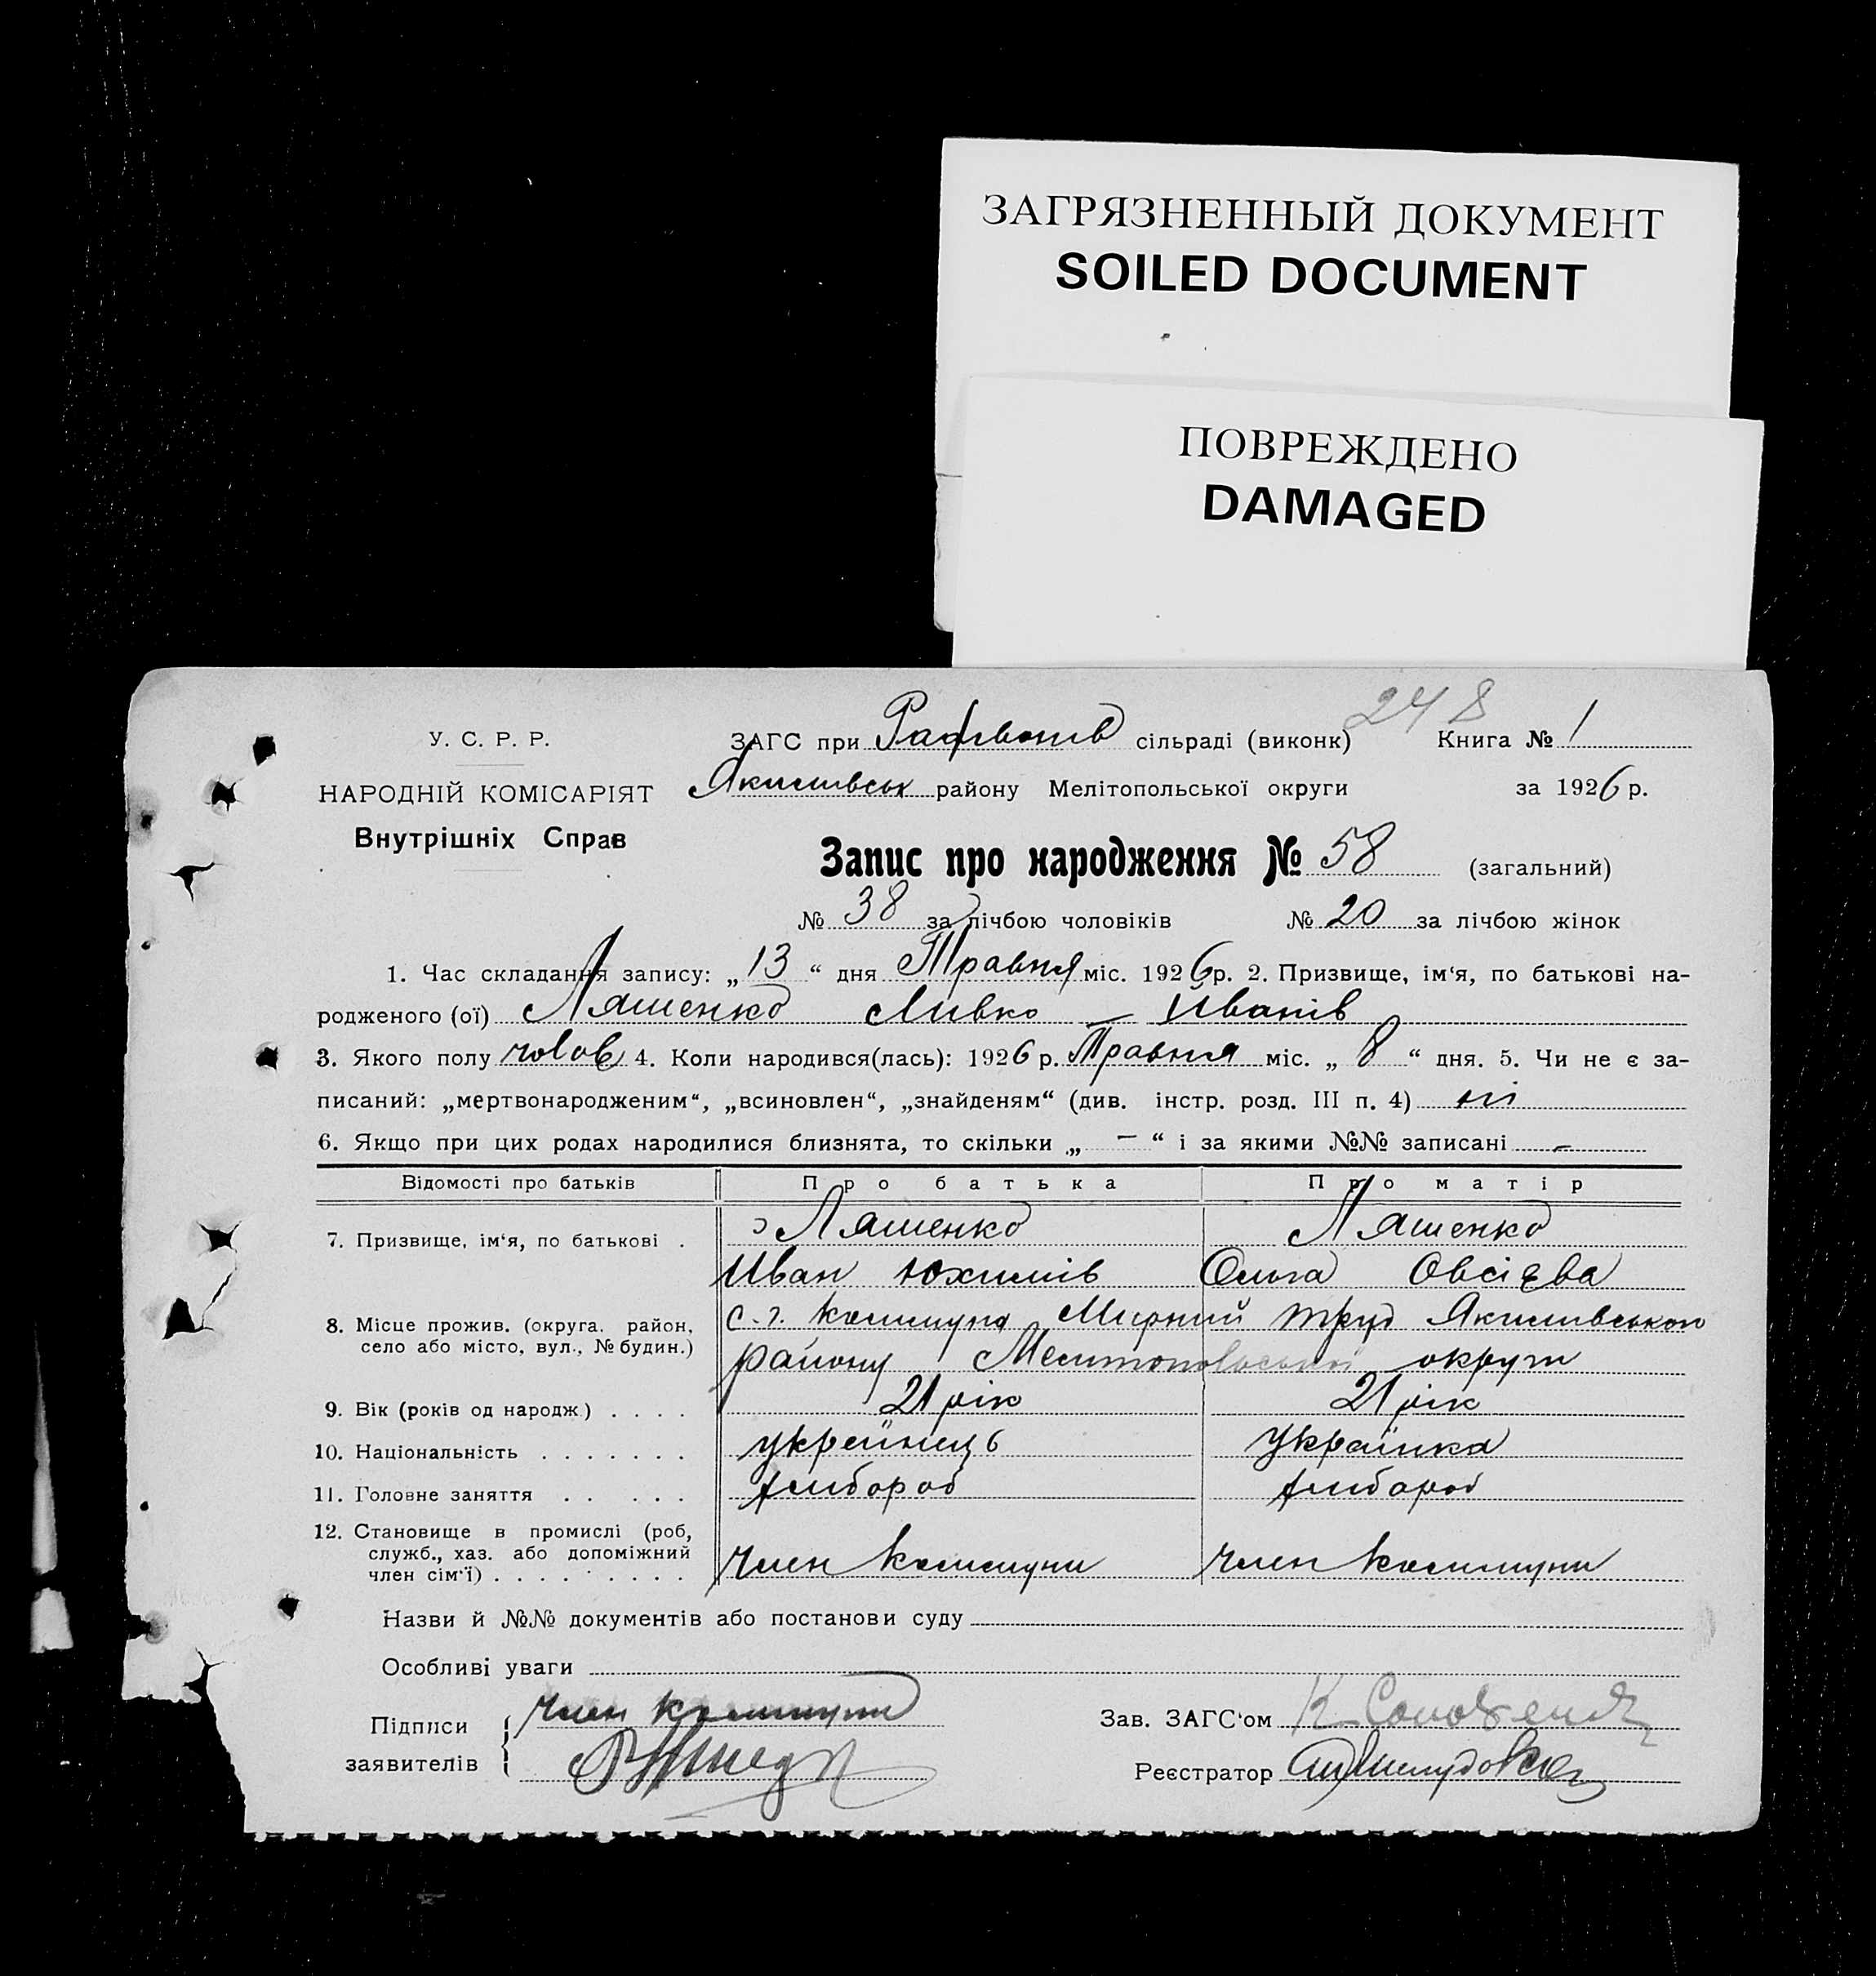 ЗАГРЯЗНЕННЫЙ ДОКУМЕНТ
SOILED DOCUMENT
ПОВРЕЖДЕНО
DAMAGED
248
У. С. Р. Р. ЗАГС при сільраді (виконк) Книга № 1
НАРОДНІЙ КОМІСАРІЯТ Якимівськ району Мелітопольської округи за 1926 р.
Внутрішніх Справ
Запис про народження № 58 (загальний)
№ 38 за лічбою чоловіків № 20 за лічбою жінок
1. Час складання запису: „ 13 “ дня Травня міс. 1926 р. 2. Призвище, ім‘я, по батькові на-
родженого (ої) Ляшенко Ливко — Иванів
3. Якого полу чолов 4. Коли народився(лась): 1926 р. Травня міс. „ 8 “ дня. 5. Чи не є за-
писаний: „мертвонародженим“, „всиновлен“, „знайденям“ (див. інстр. розд. III п. 4) ні
6. Якщо при цих родах народилися близнята, то скільки „ — “ і за якими №№ записані —
Відомості про батьків Про батька Про матір
7. Призвище, ім‘я, по батькові . Ляшенко Ляшенко
Иван Юхимів Ольга Овсієва
8. Місце прожив. (округа. район, с.г. коммуна Мирний труд Якимивського
село або місто, вул., № будин.) району Мелитопольської округи
9. Вік (років од народж.) . . . . 21 рік 21 рік
10. Національність . . . . . . . українець Українка
11. Головне заняття . . . . . хлибороб хлибороб
12. Становище в промислі (роб,
служб., хаз. або допоміжний
член сім‘ї) . . . . . . . . . член коммуни член коммуни
Назви й №№ документів або постанови суду
Особливі уваги
Підписи член коммуни Зав. ЗАГС‘ом
заявителів Реєстратор